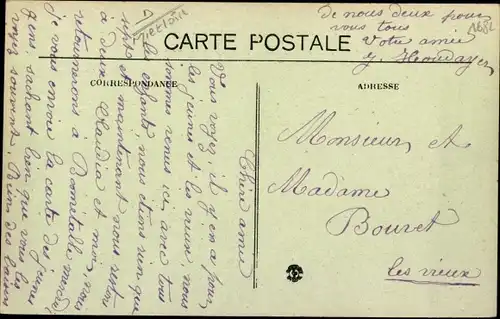 CARTE POSTALE
CORRESPONDANCE
ADRESSE
Chère amie
Vous voyez, il y en a pour
les jeunes et les vieux nous
sommes venus ici, avec tous
les enfants, nous étions rien que
et maintenant nous restons
à deux Claudia et moi, nous
retournerons à
je vous envoie la carte des jeunes
gens, sachant bien que vous les
voyez souvent. Bien des baisers
de nous deux pour
vous tous
Votre amie
Monsieur et
Madame
Bouret
les vieux